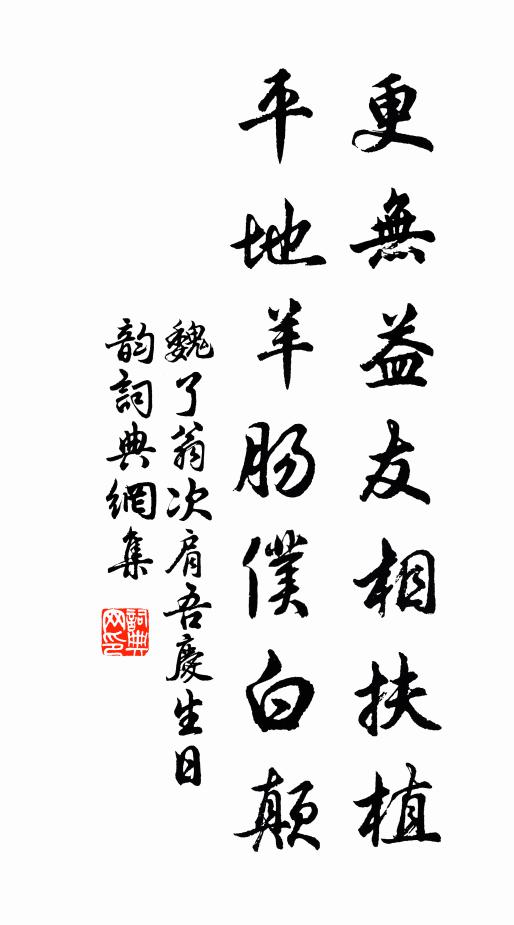 更無益友相扶植
平地羊腸僕白顛
魏了翁次肩吾慶生日
韵詞典網集
詞典
网印